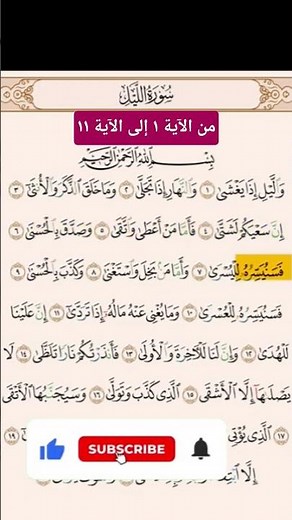 سُورَةُ اللَّيْلِ
من الآية ١ إلى الآية ١١
بِسْمِ اللَّهِ الرَّحْمَٰنِ الرَّحِيمِ
وَاللَّيْلِ إِذَا يَغْشَىٰ ١ وَالنَّهَارِ إِذَا تَجَلَّىٰ ٢ وَمَا خَلَقَ الذَّكَرَ وَالْأُنثَىٰ ٣
إِنَّ سَعْيَكُمْ لَشَتَّىٰ ٤ فَأَمَّا مَنْ أَعْطَىٰ وَاتَّقَىٰ ٥ وَصَدَّقَ بِالْحُسْنَىٰ ٦
فَسَنُيَسِّرُهُ لِلْيُسْرَىٰ ٧ وَأَمَّا مَنۢ بَخِلَ وَاسْتَغْنَىٰ ٨ وَكَذَّبَ بِالْحُسْنَىٰ ٩
فَسَنُيَسِّرُهُ لِلْعُسْرَىٰ ١٠ وَمَا يُغْنِي عَنْهُ مَالُهُ إِذَا تَرَدَّىٰ ١١ إِنَّ عَلَيْنَا
لَلْهُدَىٰ ١٢ وَإِنَّ لَنَا لَلْآخِرَةَ وَالْأُولَىٰ ١٣ فَأَنذَرْتُكُمْ نَارًا تَلَظَّىٰ ١٤ لَا
يَصْلَىٰهَا إِلَّا الْأَشْقَى ١٥ الَّذِي كَذَّبَ وَتَوَلَّىٰ ١٦ وَسَيُجَنَّبُهَا الْأَتْقَى
١٧ الَّذِي يُؤْتِي ١٩
SUBSCRIBE
إِلَّا